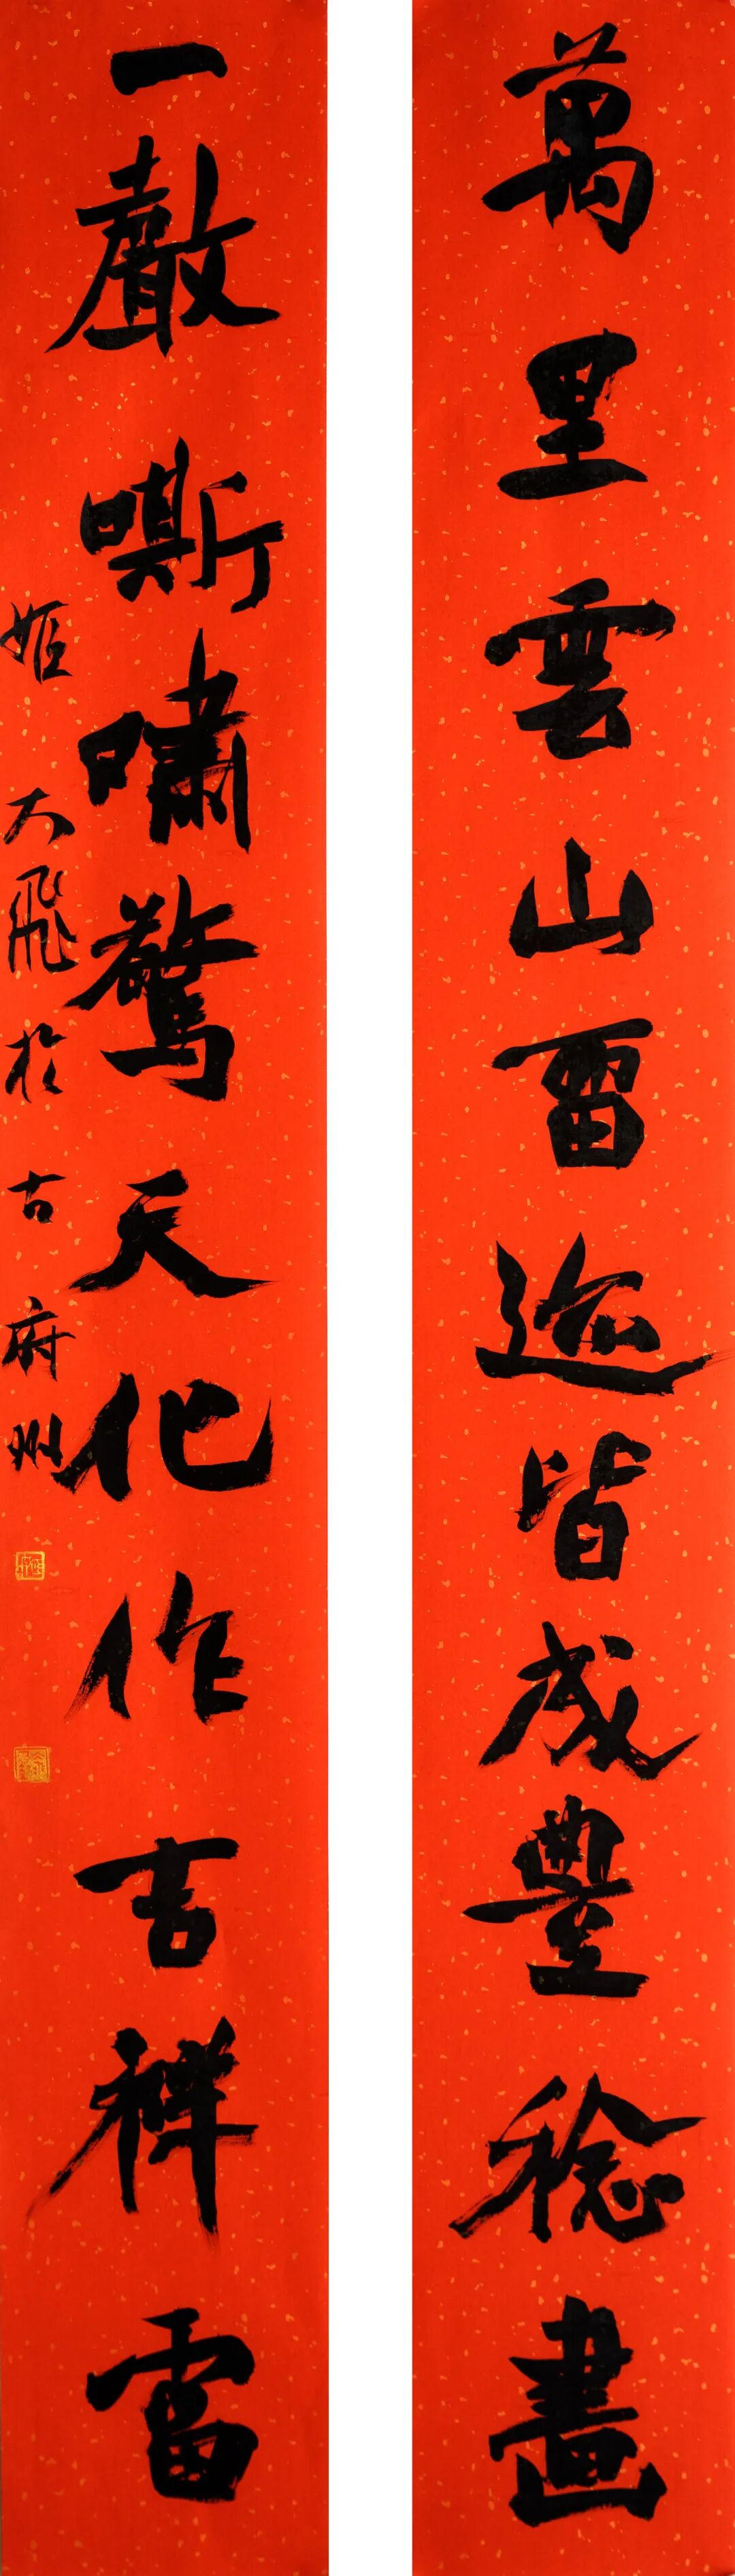 萬里雲山留迹皆成豐稔畫
一聲嘶嘯驚天化作吉祥雷
姬大飛於古府州